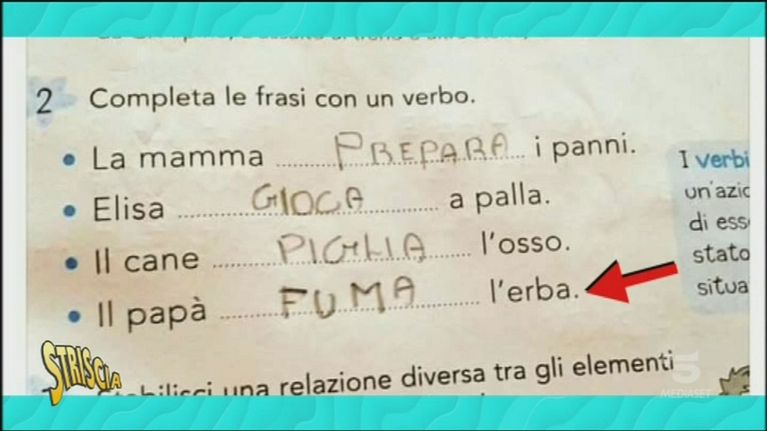 2 Completa le frasi con un verbo.
• La mamma PREPARA i panni.
• Elisa GIOCA a palla.
• Il cane PIGLIA l'osso.
• Il papà FUMA l'erba.
I verbi
un'azio
di ess
stato
situa
una relazione diversa tra gli elementi
STRISCIA
5
MEDIASET